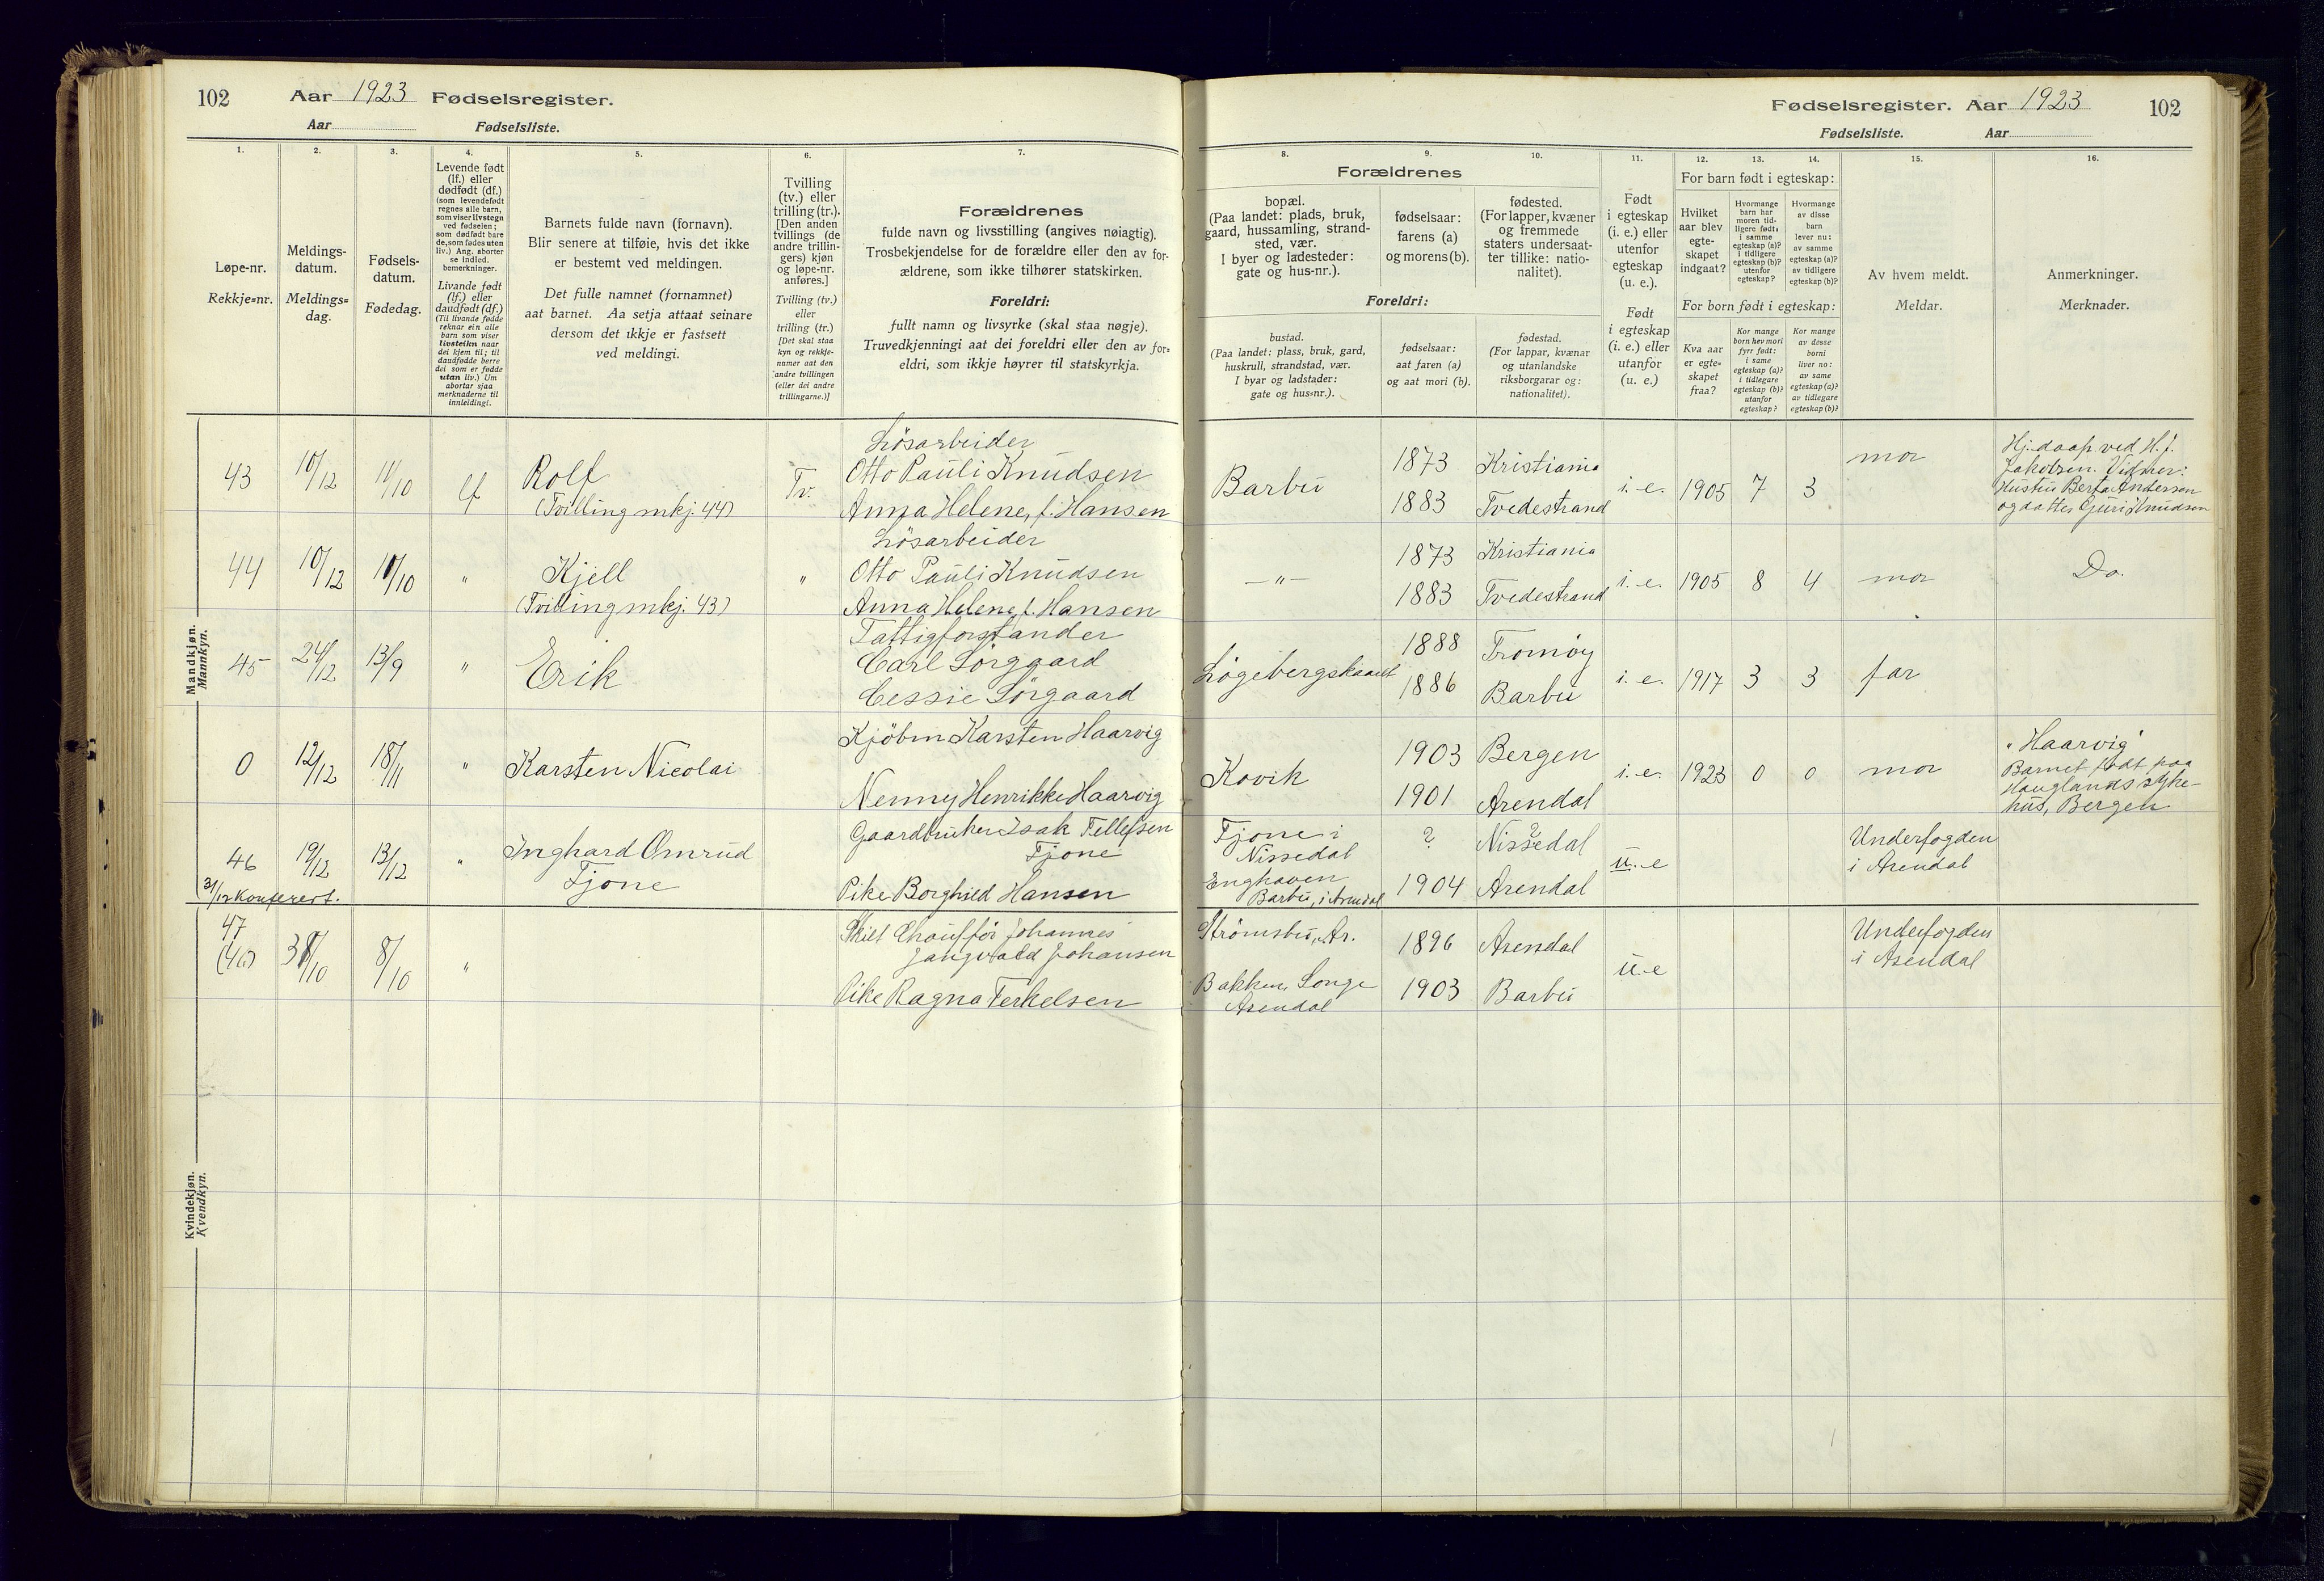 102 Aar 1923 Fødselsregister.
Aar Fødselsliste.
1.
2.
3.
4.
5.
6.
7.
Løpe-nr.
Rekkje=nr.
Meldings-
datum.
Meldings=
dag.
Fødsels-
datum.
Fødedag.
Levende født
(lf.) eller
dødfødt (df.)
(som levendefødt
regnes alle barn,
som viser livstegn
ved fødselen;
som dødfødt bare
de, som fødes uten
liv.) Ang. aborter
se indled.
bemerkninger.
Livande født
(lf.) eller
daudfødt (df.)
(Til livande fødde
reknar ein alle
barn som viser
livsteikn naar
dei kjem til; til
daudfødde berre
dei som er fødde
utan liv.) Um
abortar sjaa
merknaderne til
innleidingi.
Barnets fulde navn (fornavn).
Blir senere at tilføie, hvis det ikke
er bestemt ved meldingen.
Det fulle namnet (fornamnet)
aat barnet. Aa setja attaat seinare
dersom det ikkje er fastsett
ved meldingi.
Tvilling
(tv.) eller
trilling (tr.).
[Den anden
tvillings (de
andre trillin-
gers) kjøn
og løpe-nr.
anføres.]
Tvilling (tv.)
eller
trilling (tr.)
[Det skal staa
kyn og rekkje-
namer aat den
andre tvillingen
(eller dei andre
trillingarne.)]
Forældrenes
fulde navn og livsstilling (angives nøiagtig).
Trosbekjendelse for de forældre eller den av for-
ældrene, som ikke tilhører statskirken.
Foreldri:
fullt namn og livsyrke (skal staa nøgje).
Truvedkjenningi aat dei foreldri eller den av for=
eldri, som ikkje høyrer til statskyrkja.
Mandkjøn.
Mannkyn.
43 10/12 11/10 lf Rolf Tv. Lösarbeider
(Tvilling mkj. 44) Otto Pauli Knudsen
Anna Helene, f. Hansen
44 10/12 11/10 " Kjell " Lösarbeider
(Tvilling mkj. 43) Otto Pauli Knudsen
Anna Helene, f. Hansen
45 24/12 13/9 " Erik Fattigforstander
Carl Sörgaard
Cessie Sörgaard
0 12/12 18/11 " Karsten Nicolai Kjöbm Karsten Haarvig
Nenny Henrikke Haarvig
46 19/12 13/12 " Inghard Omrud Gaardbruker Isak Tellefsen
Tjone Tjone
Pike Borghild Hansen
31/12 Konferert.
Kvindekjøn.
Kvendkyn.
47
(46) 8/10 " Skilt Chaufför Johannes
Johansen
Pike Ragna Terkelsen
Fødselsregister. Aar 1923 102
Fødselsliste. Aar
8.
9.
10.
11.
12.
13.
14.
15.
16.
Forældrenes
bopæl.
(Paa landet: plads, bruk,
gaard, hussamling, strand-
sted, vær.
I byer og ladesteder:
gate og hus-nr.).
fødselsaar:
farens (a)
og morens (b).
fødested.
(For lapper, kvæner
og fremmede
staters undersaat-
ter tillike: natio-
nalitet).
Foreldri:
bustad.
(Paa landet: plass, bruk, gard,
huskrull, strandstad, vær.
I byar og ladstader:
gate og hus=nr.).
fødselsaar:
aat faren (a)
og aat mori (b).
fødestad.
(For lappar, kvænar
og utanlandske
riksborgarar og:
nationalitet).
Født
i egteskap
(i. e.) eller
utenfor
egteskap
(u. e.).
Født
i egteskap
(i. e.) eller
utanfor
(u. e.)
For barn født i egteskap:
Hvilket
aar blev
egte-
skapet
indgaat?
Hvormange
barn har
moren tid-
ligere født:
i samme
egteskap (a)?
i tidligere
egteskap (b)?
utenfor
egteskap?
Hvormange
av disse
barn
lever nu:
av samme
egteskap (a)?
av tidligere
egteskap (b)?
For born født i egteskap:
Kva aar
er egte=
skapet
fraa?
Kor mange
born hev mori
fyrr født:
i same
egteskap (a)?
i tidlegare
egteskap (b)?
utanfor
egteskap?
Kor mange
av desse
borni
liver no:
av same
egteskap (a)?
av tidlegare
egteskap (b)?
Av hvem meldt.
Meldar.
Anmerkninger.
Merknader.
Barbu 1873 Kristiania i.-e. 1905 7 3 mor Hj.daap ved H. J.
1883 Tvedestrand Jakobsen. Vidner:
Hustru Berta Andersen
og datter Guri Knudsen
— " — 1873 Kristiania i.-e. 1905 8 4 mor Do.
1883 Tvedestrand
1888 Tromöy i.-e. 1917 3 3 far
1886 Barbu
Kovik 1903 Bergen i.-e. 1923 0 0 mor "Haarvig"
1901 Arendal Barnet födt paa
Hauglands syke-
hus, Bergen
Tjone i ? Nissedal u.-e Underfogden
Nissedal i Arendal
Enghaven 1904 Arendal
Barbu, i Arendal
Strömsbu, Ar. 1896 Arendal u.-e Underfogden
i Arendal
Bakken, Songe 1903 Barbu
Arendal